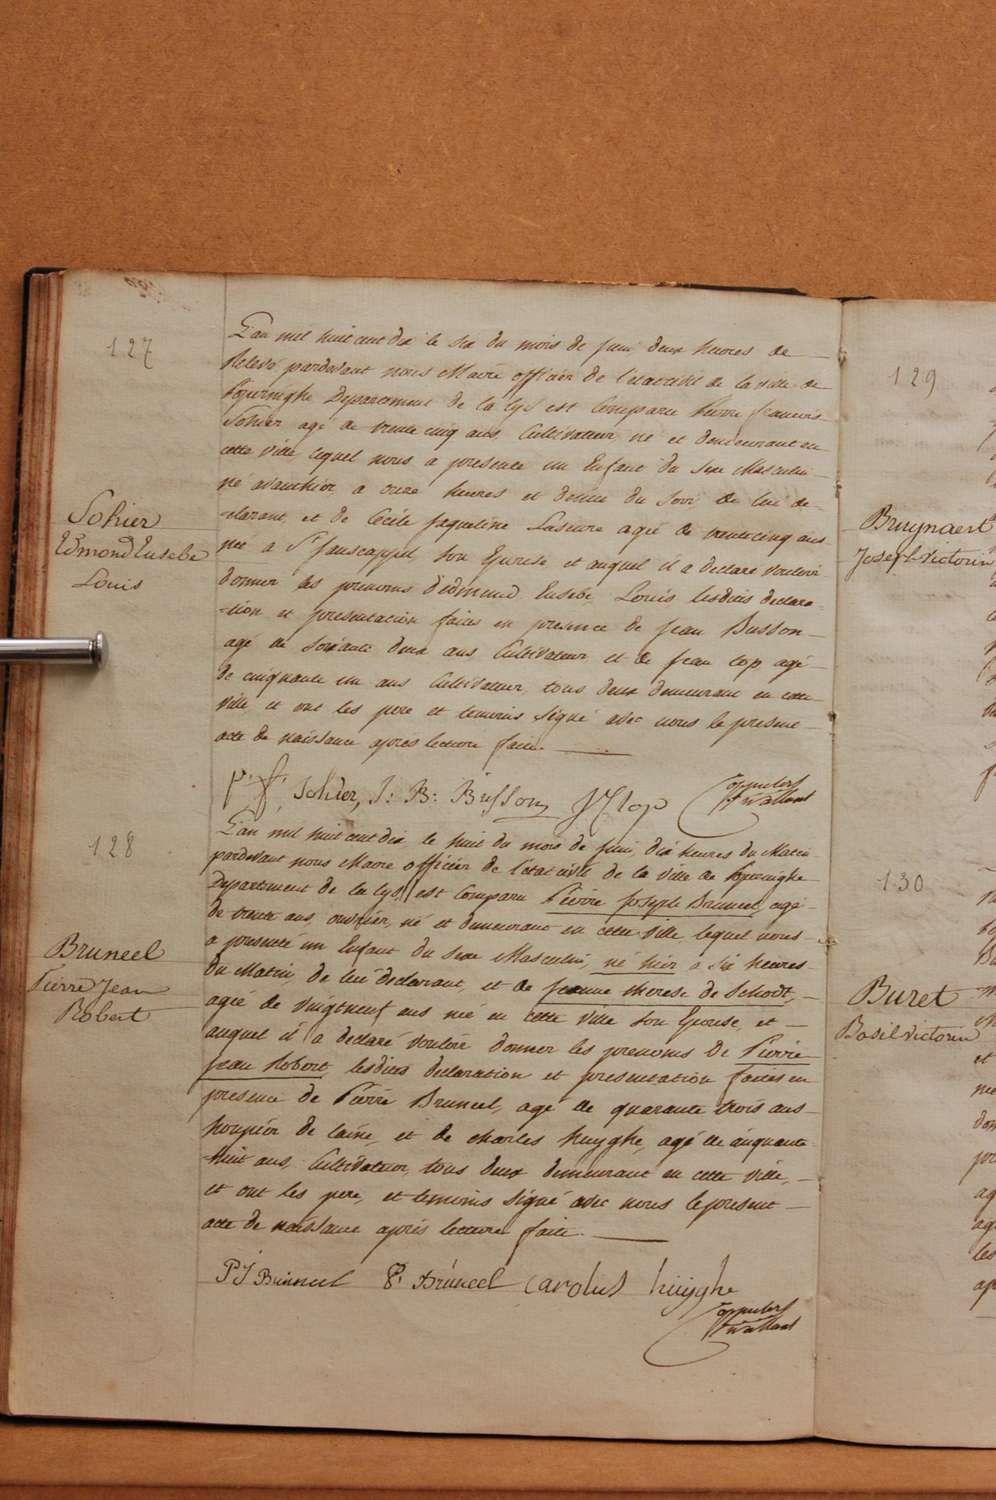 127
Sohier
Edmond Eusebe
Louis
L'an mil huit cent dix le six du mois de juin deux heures de
Relevé pardevant nous Maire officier de l'etat civil de la ville de
Poperinghe Departement de la Lys est Comparu Pierre francois
Sohier agé de trente cinq ans Cultivateur né et demeurant en
cette ville lequel nous a presenté un Enfant du Sexe Masculin
né avanthier a onze heures et demie du Soir de lui de-
-clarant, et de Cécile Jaqueline Laseure agée de trente cinq ans
née a St. Janscappel, Son Epouse et auquel il a declaré vouloir
donner les prenoms d'edmond Eusebe, Louis lesdites declara-
-tion et presentation faites en presence de Jean Busson
agé de soixante deux ans Cultivateur et de Jean top agé
de cinquante un ans Cultivateur, tous deux demeurant en cette
ville, et ont les pere et temoins Signé avec nous le present
acte de naissance après lecture faite.
p. f. Sohier, J: B: Busson J J top
128
Bruneel
Pierre Jean
Robert
L'an mil huit cent dix le huit du mois de juin, dix heures du Matin
pardevant nous Maire officier de l'etat civil de la ville de Poperinghe
Departement de la Lys, est Comparu Pierre Joseph Bruneel, agé
de trente ans, ouvrier, né et demeurant en cette ville lequel nous
a presenté un Enfant du Sexe Masculin, né hier a six heures
du Matin, de lui declarant, et de jeanne therese de Schodt,
agée de vingtneuf ans née en cette ville Son Epouse, et
auquel il a declaré vouloir donner les prenoms de Pierre
Jean Robert lesdites declaration et presentation faites en
presence de Pierre Bruneel, agé de quarante trois ans
houpier de laine, et de charles huyghe, agé de cinquante
-huit ans, Cultivateur, tous deux demeurant en cette ville,
et ont les pere, et temoins signé avec nous le present
acte de naissance après lecture faite.
P J Bruneel P. Bruneel Carolus huyghe
129
Bruynaert
Joseph Victorin
130
Buret
Basil Victorin